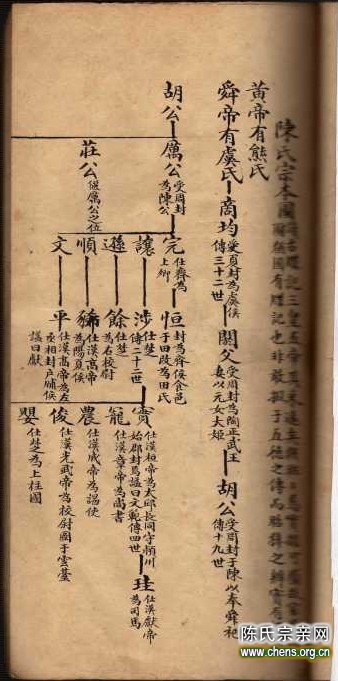 陳氏宗本圖
黃帝有熊氏
舜帝有虞氏
商均
受夏封為虞侯
傳三十二世
閼父
受周封為陶正武王
妻以元女大姬
胡公
受周封于陳以奉舜祀
傳十九世
胡公
厲公
受周封
為陳公
莊公
繼厲公之位
完
仕齊為
上卿
讓
遜
順
文
恒
封為齊侯食邑
于田改為田氏
涉
仕楚
傳二十二世
餘
仕楚
為右校尉
狶
仕漢高帝
為陽夏侯
平
仕漢高帝為左
丞相封戶牖侯
諡曰獻
寔
仕漢桓帝為太邱長同守潁川
始郡封為諡曰文範傳四世
龍
仕漢章帝為尚書
農
仕漢成帝為諡使
俊
仕漢光武帝為校尉圖于雲臺
嬰
仕楚為上柱國
珪
仕漢獻帝
為司馬
陈氏宗亲网
www.chens.org.cn